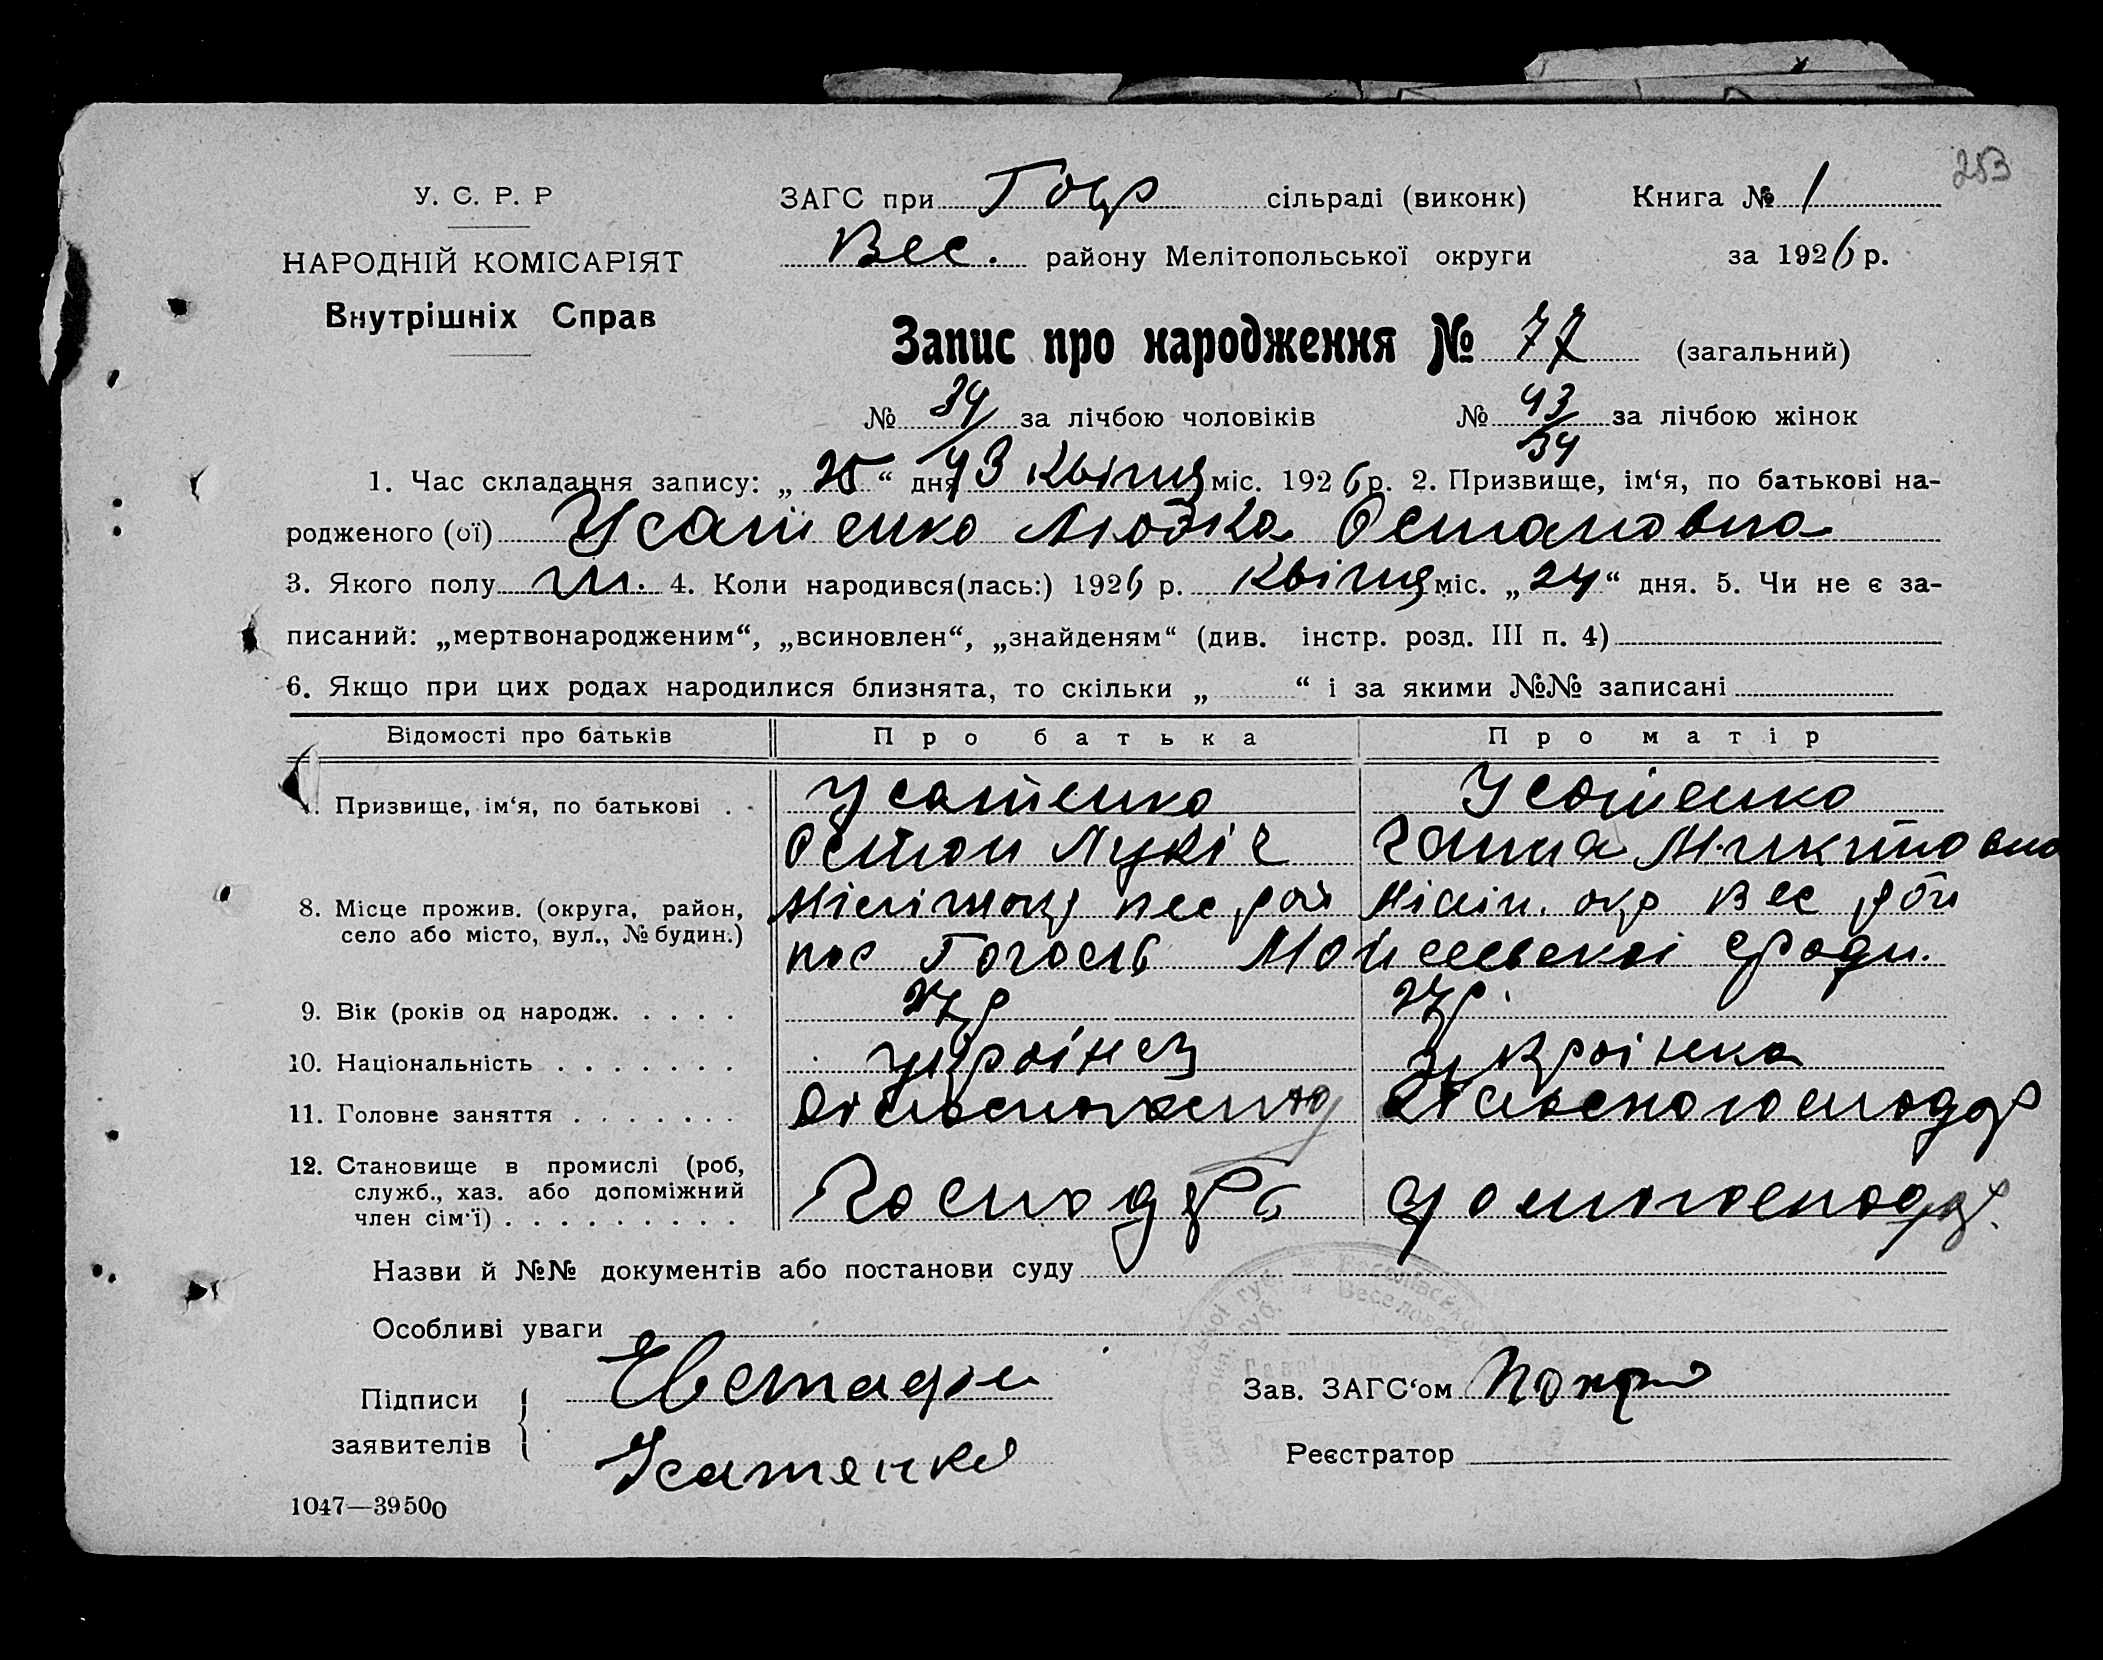 253
У. С. Р. Р
ЗАГС при сільраді (виконк) Книга № 1
НАРОДНІЙ КОМІСАРІЯТ
Вес. району Мелітопольської округи за 1926 р.
Внутрішніх Справ
Запис про народження № 77 (загальний)
№ 34 за лічбою чоловіків № 43 за лічбою жінок
34
1. Час складання запису: „ 25 “ дня 43 Квітня міс. 1926 р. 2. Призвище, ім‘я, по батькові на-
родженого (ої) Усатенко Людка Остаповна
3. Якого полу 4. Коли народився(лась:) 1926 р. Квітня міс. „ 24 “ дня. 5. Чи не є за-
писаний: „мертвонародженим“, „всиновлен“, „знайденям“ (див. інстр. розд. III п. 4)
6. Якщо при цих родах народилися близнята, то скільки „ “ і за якими №№ записані
Відомості про батьків Про батька Про матір
Призвище, ім‘я, по батькові Усатенко Усатенко
Остап Лукіч Ганна Микитовна
8. Місце прожив. (округа, район, рай Вес рай
село або місто, вул., № будин.) пос Гоголь
9. Вік (років од народж. 27 р 27 р.
10. Національність українец українка
11. Головне заняття сільськогосподар
12. Становище в промислі (роб, господар
служб., хаз. або допоміжний
член сім‘ї)
Назви й №№ документів або постанови суду
Особливі уваги
Підписи Евстафи Зав. ЗАГС‘ом
заявителів Усатенко
Реєстратор
1047—39500